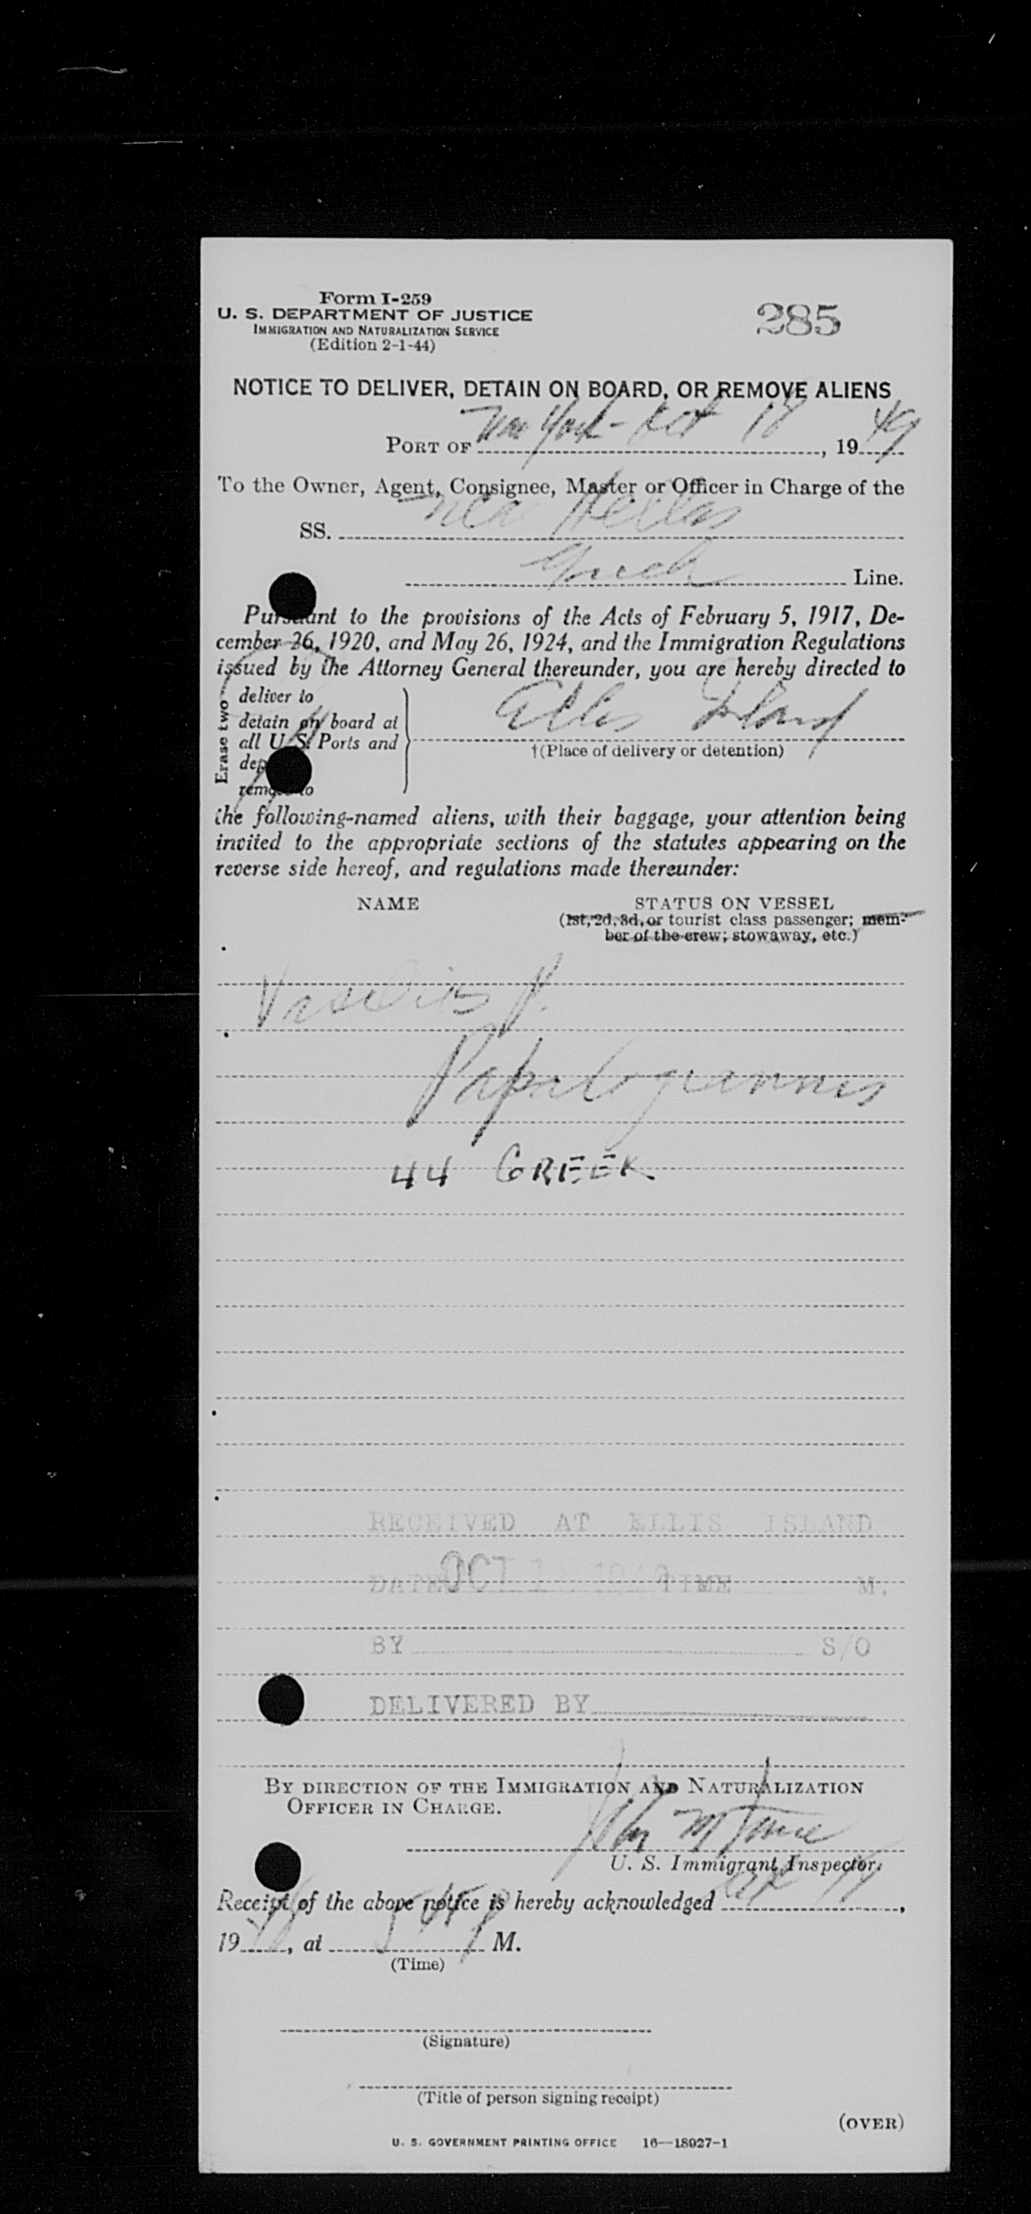 Form I-259
U. S. DEPARTMENT OF JUSTICE
IMMIGRATION AND NATURALIZATION SERVICE
(Edition 2-1-44)
285
NOTICE TO DELIVER, DETAIN ON BOARD, OR REMOVE ALIENS
PORT OF New York - Oct 18, 1949
To the Owner, Agent, Consignee, Master or Officer in Charge of the
SS. Nea Hellas
Greek Line.
Pursuant to the provisions of the Acts of February 5, 1917, De-
cember 26, 1920, and May 26, 1924, and the Immigration Regulations
issued by the Attorney General thereunder, you are hereby directed to
Erase two
deliver to
detain on board at
all U. S. Ports and
remove to
Ellis Island
†(Place of delivery or detention)
the following-named aliens, with their baggage, your attention being
invited to the appropriate sections of the statutes appearing on the
reverse side hereof, and regulations made thereunder:
NAME
STATUS ON VESSEL
(1st, 2d, 3d, or tourist class passenger; mem-
ber of the crew; stowaway, etc.)
Vasilios P.
44 GREEK
RECEIVED AT ELLIS ISLAND
DATE OCT TIME M.
BY S/O
DELIVERED BY
BY DIRECTION OF THE IMMIGRATION AND NATURALIZATION
OFFICER IN CHARGE.
U. S. Immigrant Inspector.
Receipt of the above notice is hereby acknowledged ,
19 , at M.
(Time)
(Signature)
(Title of person signing receipt)
(OVER)
U. S. GOVERNMENT PRINTING OFFICE 16—18027-1